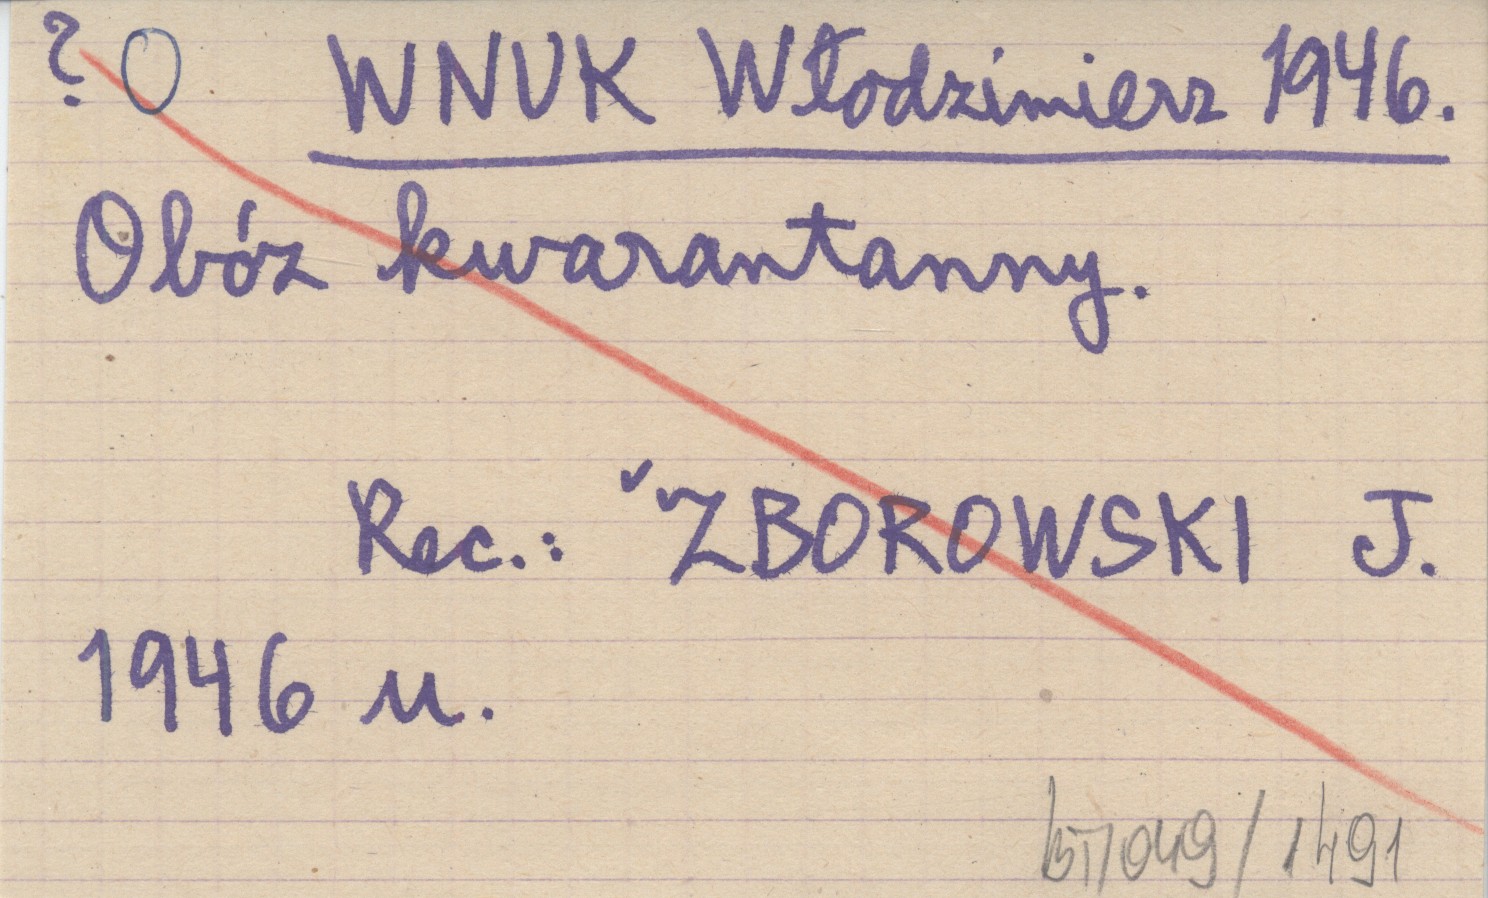 ? O WNUK Włodzimierz 1946.
Obóz kwarantanny.
Rec.: ZBOROWSKI J.
1946 u.
BT/049/1491